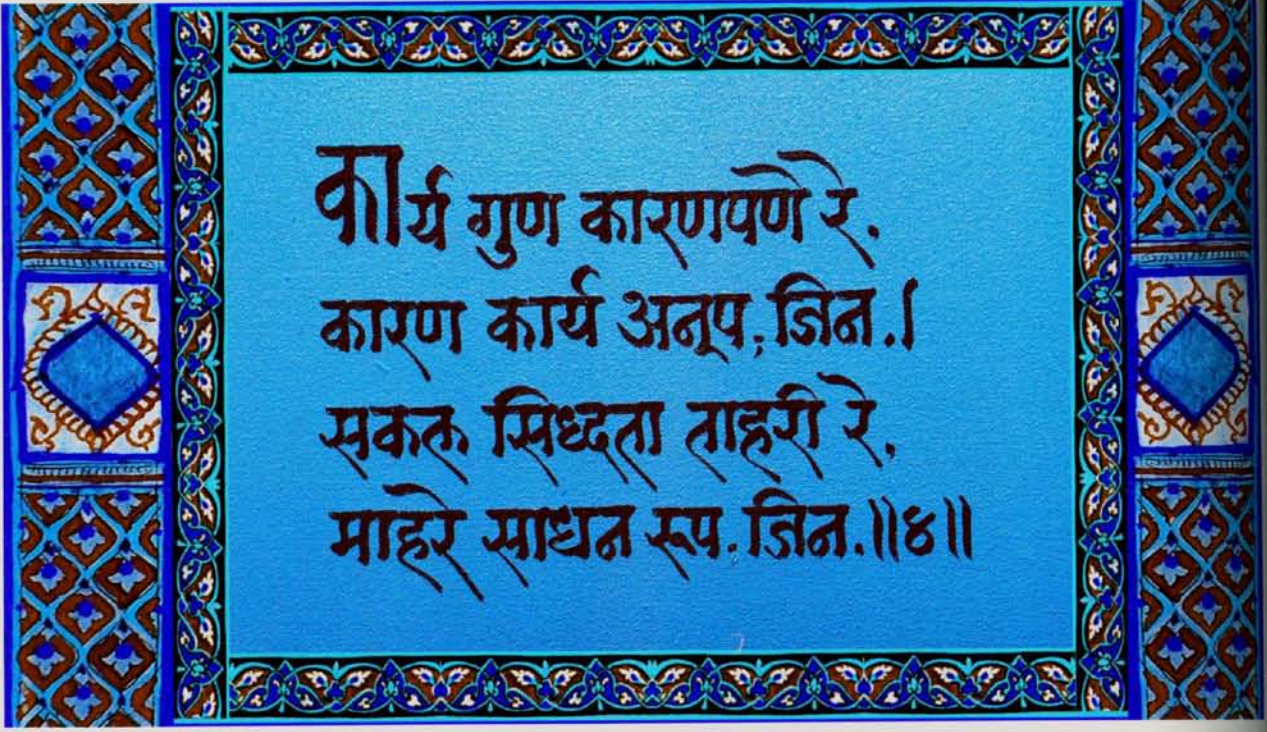 कार्य गुण कारणपणे रे.
कारण कार्य अनूप; जिन.।
सकल सिध्दता ताहरी रे,
माहरे साधन रूप. जिन.॥४॥